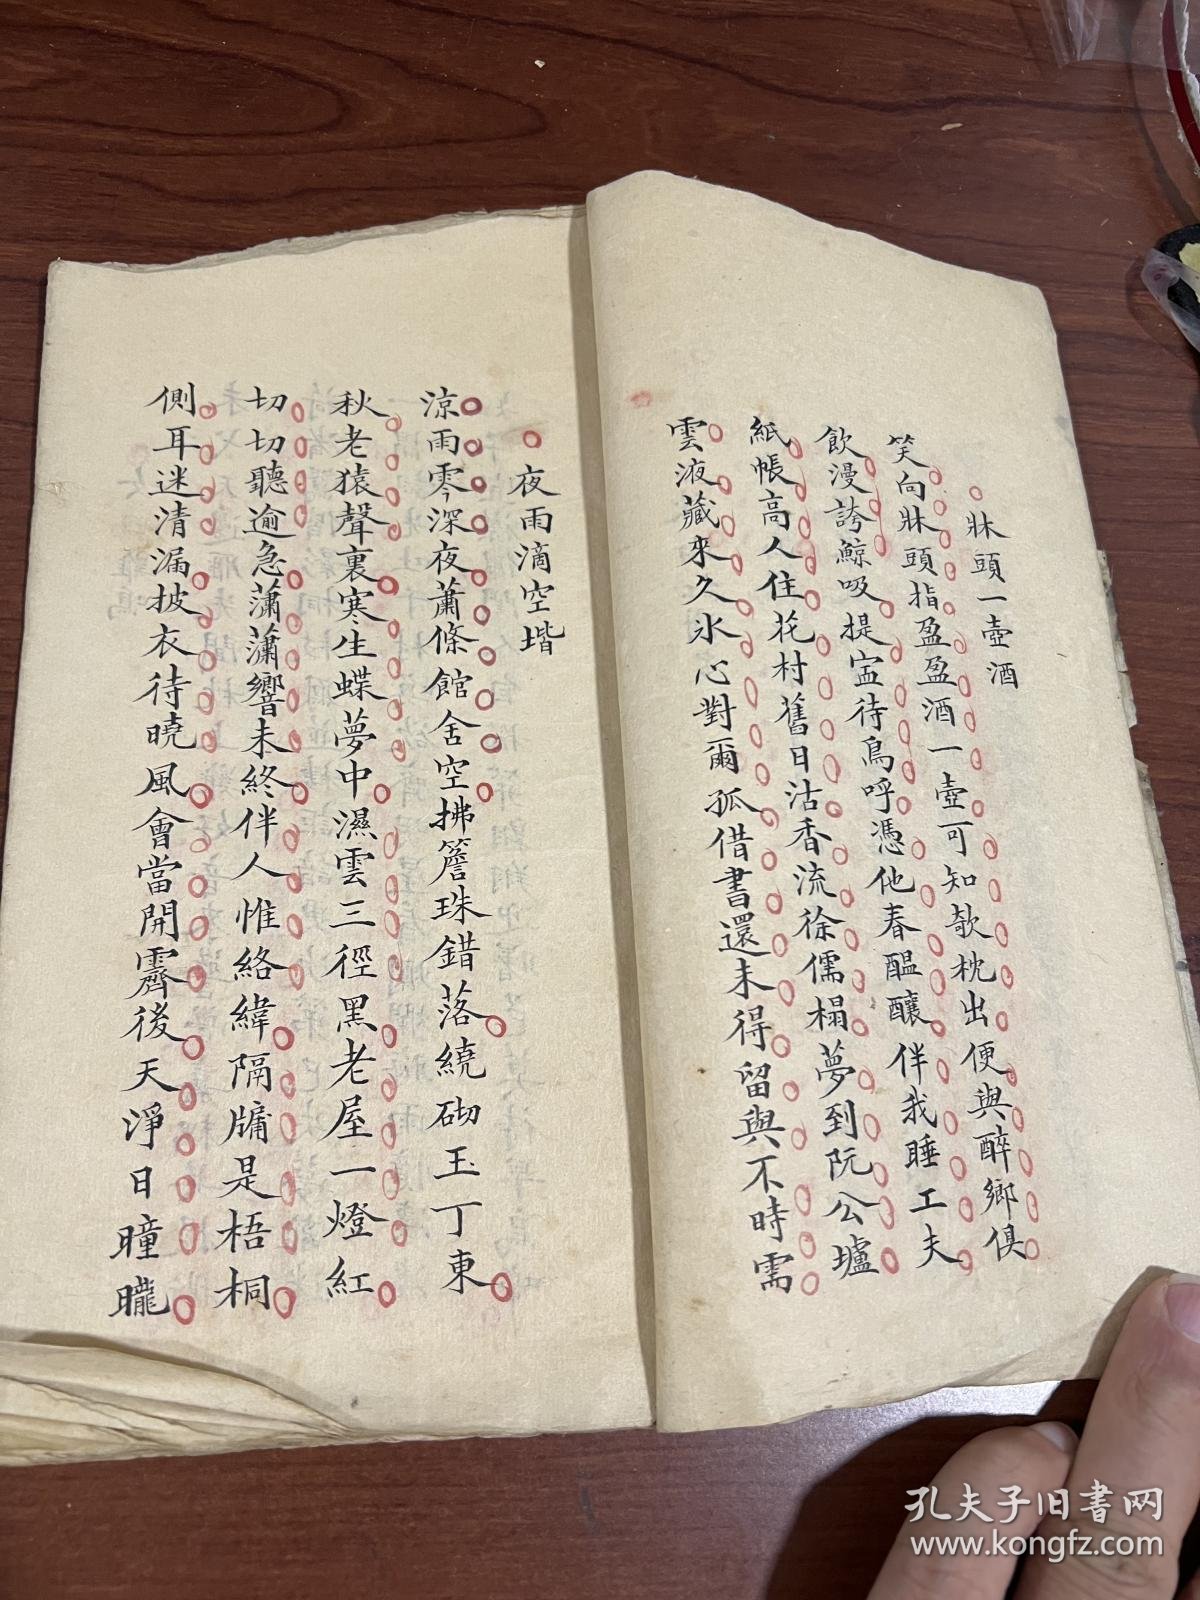 牀頭一壺酒
笑向牀頭指盈盈酒一壺可知欹枕出便與醉鄉俱
飲漫誇鯨吸提宜待鳥呼憑他春醞釀伴我睡工夫
紙帳高人住花村舊日沽香流徐儒榻夢到阮公壚
雲液藏來久冰心對爾孤借書還未得留與不時需
夜雨滴空堦
涼雨零深夜蕭條館舍空拂簷珠錯落繞砌玉丁東
秋老猿聲裏寒生蝶夢中濕雲三徑黑老屋一燈紅
切切聽逾急瀟瀟響未終伴人惟絡緯隔牖是梧桐
側耳迷清漏披衣待曉風會當開霽後天淨日曈曨
孔夫子旧书网
www.kongfz.com